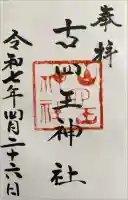 奉拝
古四王神社
令和七年四月二十六日